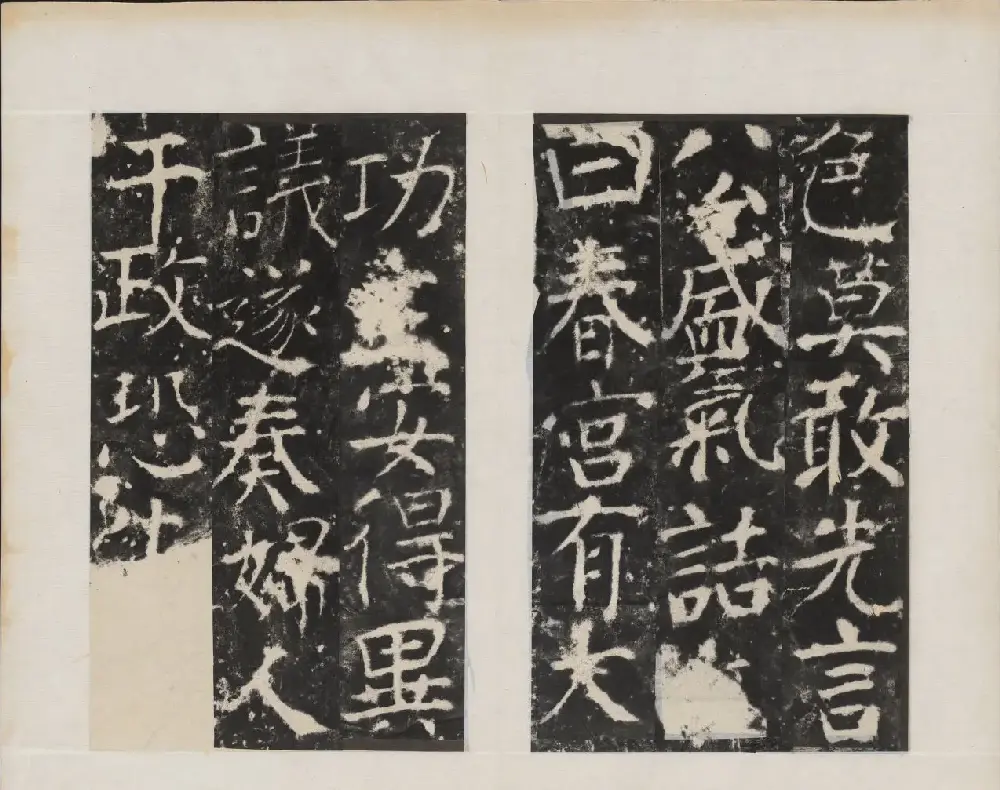 色莫敢先言
公盛氣詰
曰春宮有大
功安得異
議遂奏婦人
干政恐